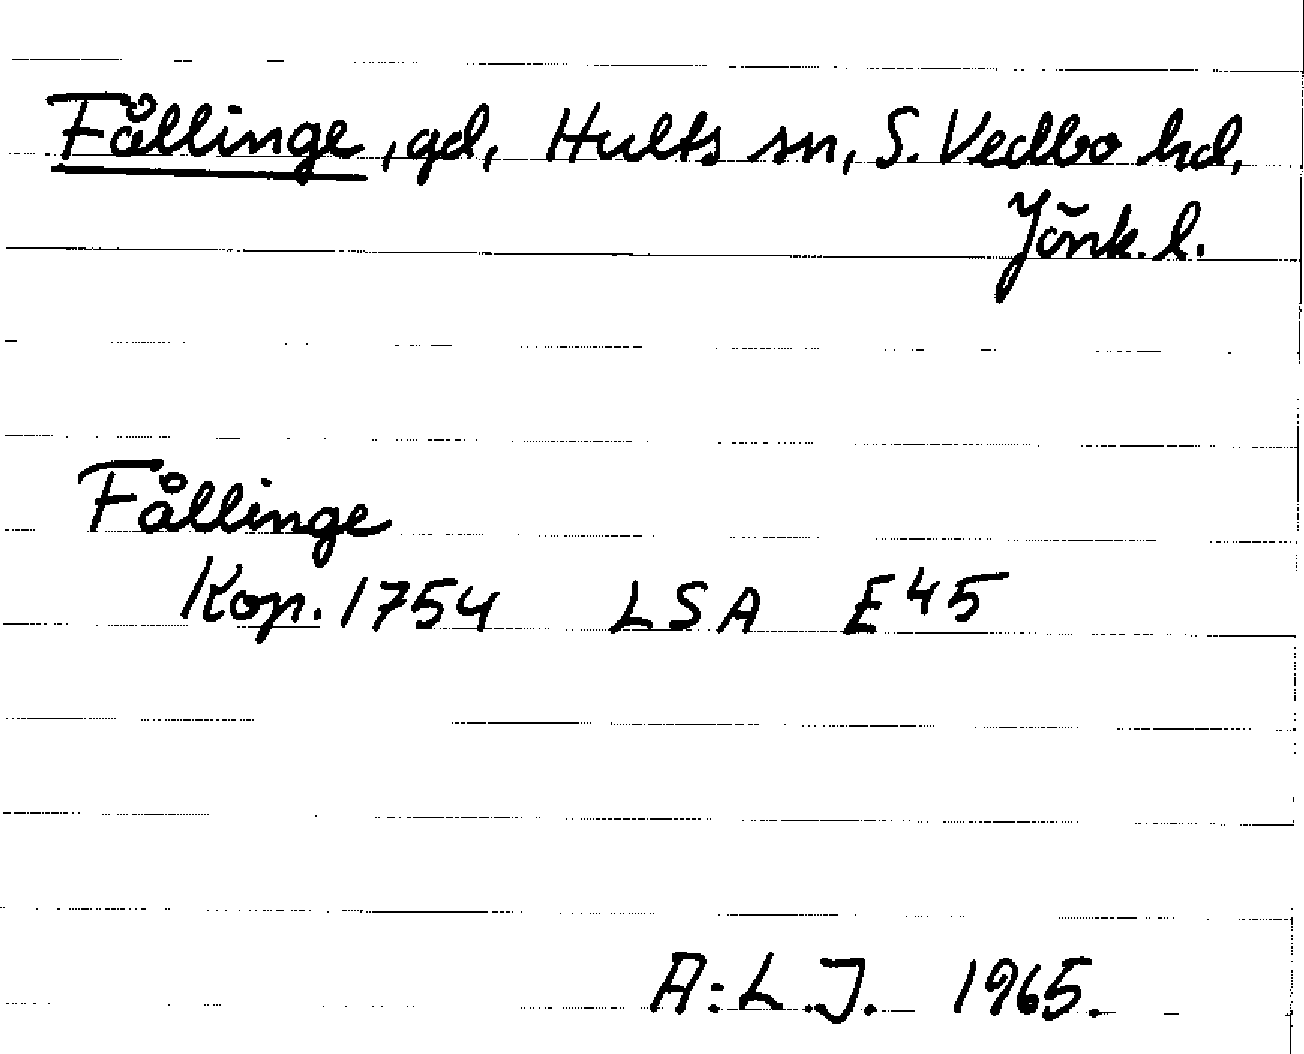 Fållinge, gd, Hults sn, S. Vedbo hd,
Jönk. l.
Fållinge
Kop. 1754 LSA E45
A:L.J. 1965.